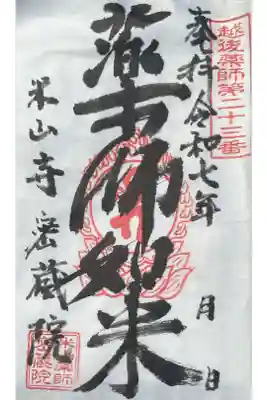 越後薬師第二十三番
奉拝 令和七年 月 日
薬師如来
米山寺 密蔵院
米山薬師
密蔵院